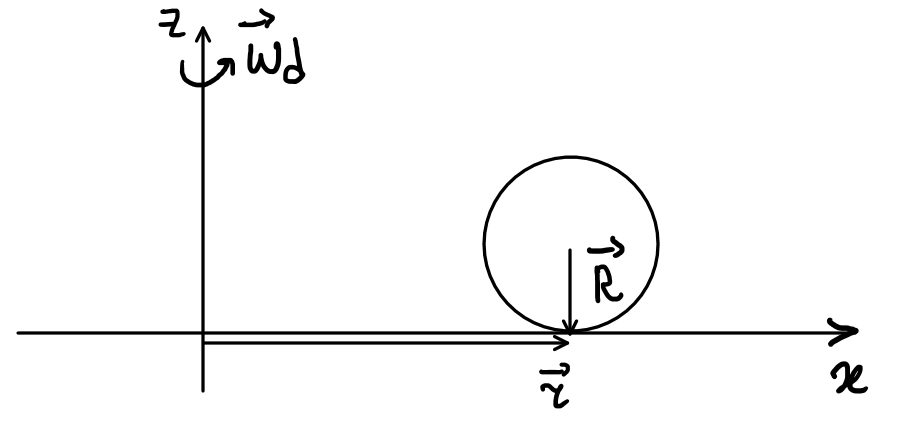 z
\vec{W}_d
\vec{R}
\vec{r}
x